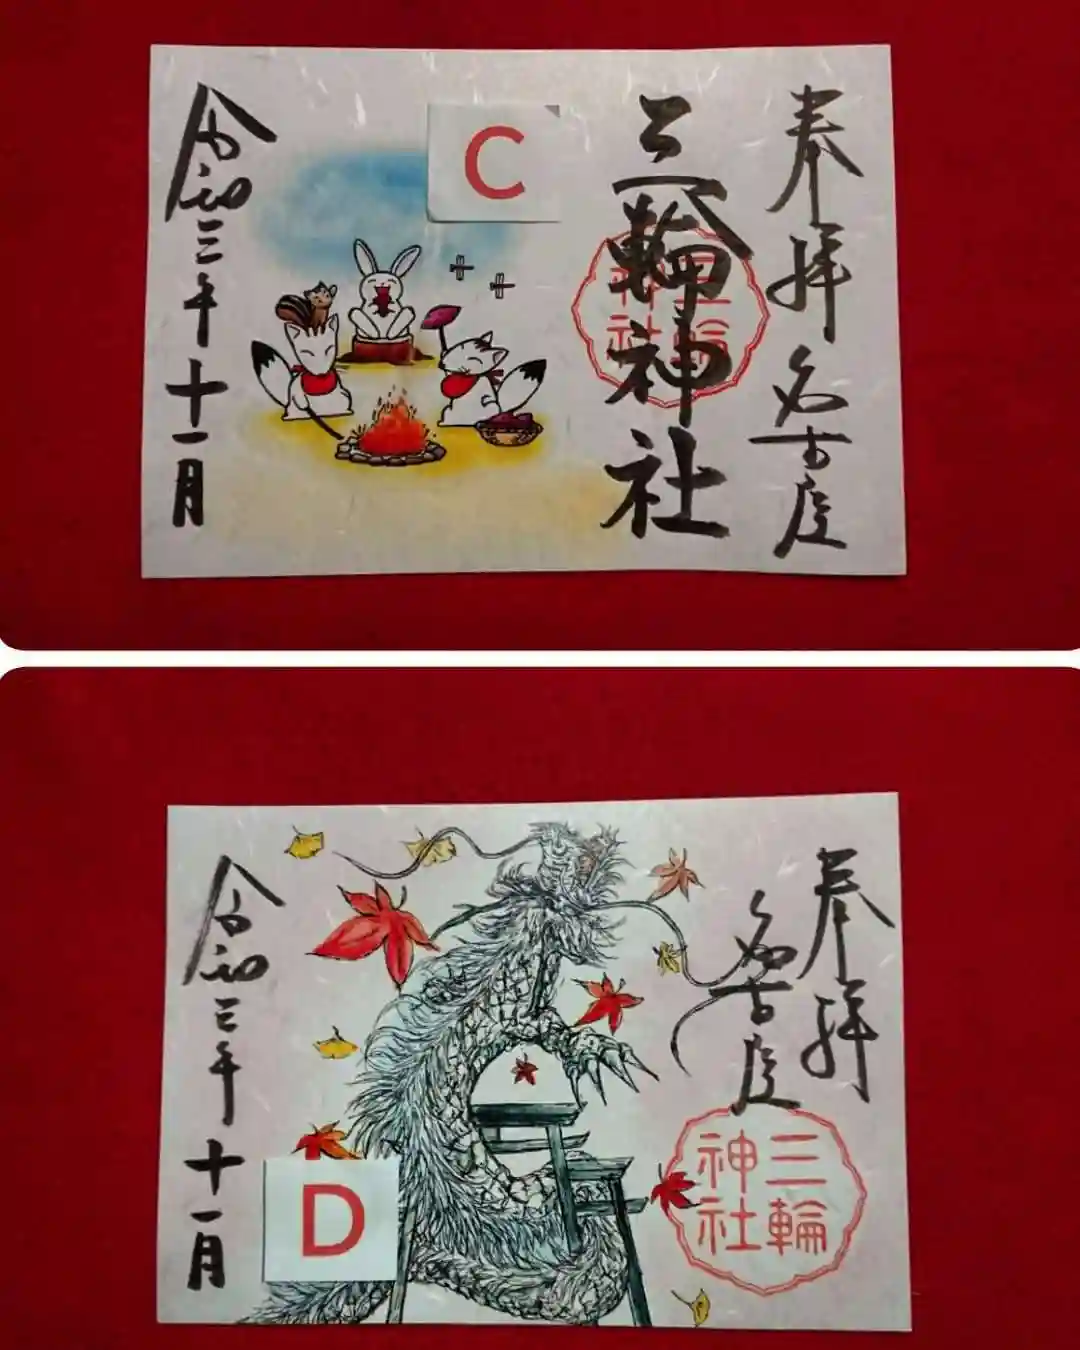 奉拝 名古屋
三輪神社
三輪
神社
C
令和三年十一月
奉拝
名古屋
三輪
神社
D
令和三年十一月